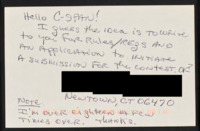 Hello C-SPAN!
I guess the idea is to write
to you for rules/regs and
an application to initiate
a submission for the contest, OK?
Newtown, CT 06470
Note:
I'm over eighteen a few
times over. Thanks.